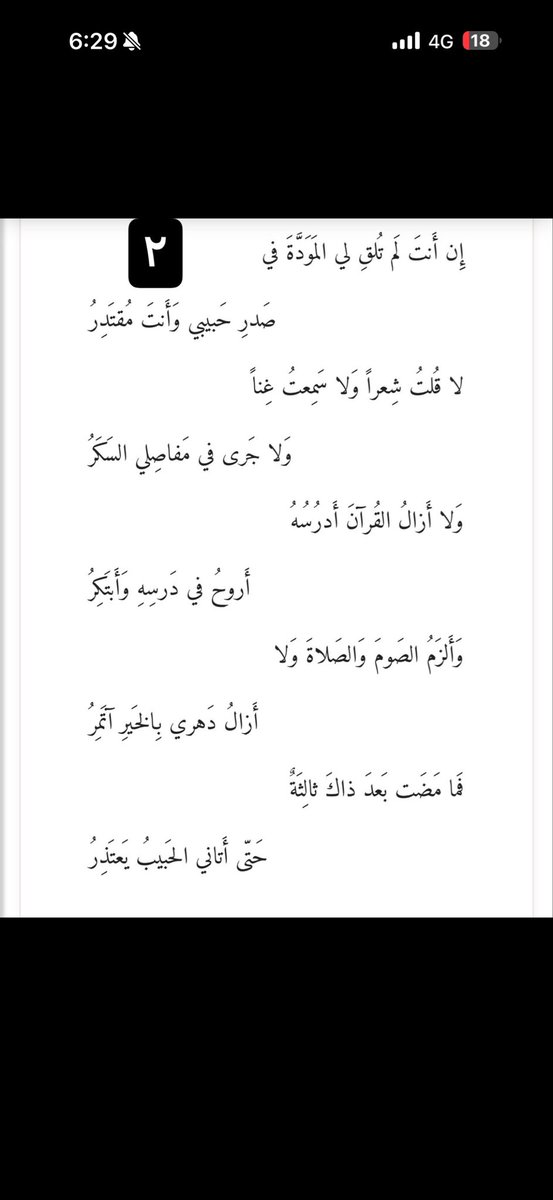 6:29
4G
18
٢
إِن أَنتَ لَم تُلقِ لي المَوَدَّةَ في
صَدرِ حَبيبي وَأَنتَ مُقتَدِرُ
لا قُلتُ شِعراً وَلا سَمِعتُ غِناً
وَلا جَرى في مَفاصِلي السَكَرُ
وَلا أَزالُ القُرآنَ أَدرُسُهُ
أَروحُ في دَرسِهِ وَأَبتَكِرُ
وَأَلزَمُ الصَومَ وَالصَلاةَ وَلا
أَزالُ دَهري بِالخَيرِ آتَمِرُ
فَما مَضَت بَعدَ ذاكَ ثالِثَةٌ
حَتّى أَتاني الحَبيبُ يَعتَذِرُ